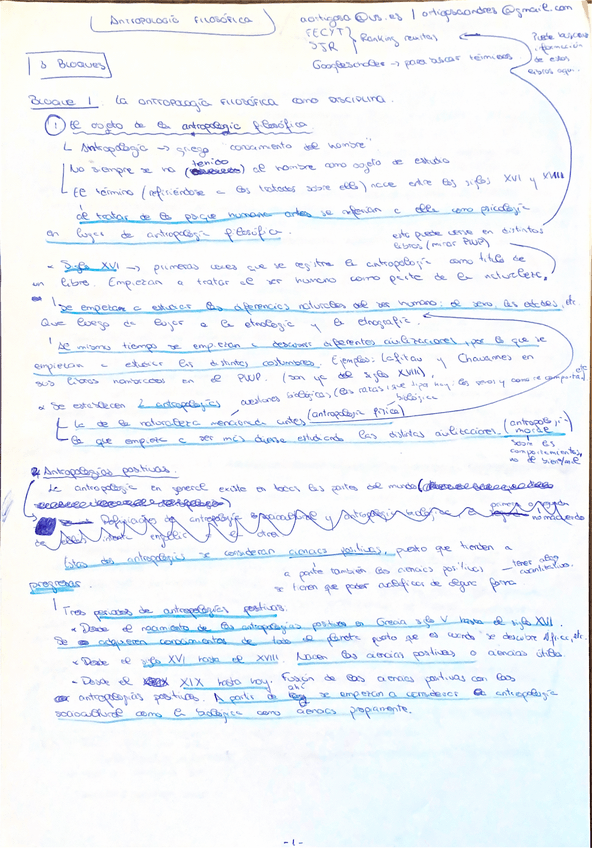 ANTROPOLOGÍA FILOSÓFICA
@us.es | @gmail.com
FECYT } Ranking revistas
SJR
Google scholar → para buscar términos
Puede buscarse información de estos libros aquí.
3 BLOQUES
BLOQUE 1. LA ANTROPOLOGÍA FILOSÓFICA COMO DISCIPLINA.
① El objeto de la antropología filosófica
Antropología → griego "conocimiento del hombre"
No siempre se ha tenido al hombre como objeto de estudio
El término (refiriéndose a los tratados sobre ello) nace entre los siglos XVI y XVIII
al tratar de la psique humana antes se referían a ella como psicología
en lugar de antropología filosófica.
esto puede verse en distintos libros (mirar PWP)
- Siglo XVI → primeras veces que se registra la antropología como título de
un libro. Empiezan a tratar al ser humano como parte de la naturaleza.
Se empiezan a estudiar las diferencias naturales del ser humano: el sexo, las edades, etc.
Que luego da lugar a la etnología y la etnografía.
Al mismo tiempo se empiezan a descubrir diferentes civilizaciones, por lo que se
empiezan a estudiar las distintas costumbres. Ejemplos: Lafitau y Chavannes en
sus libros nombrados en el PWP. (son ya del siglo XVIII)
Se establecen 2 antropologías
cuestiones biológicas (las razas que tipo hay, los sexos y como se comportan, etc
La de la naturaleza mencionada antes (antropología física) biológica
La que empieza a ser más diversa estudiando las distintas civilizaciones. (antropología moral)
sobre los comportamientos, no el bien/mal
Antropologías positivas.
La antropología en general existe en todas las partes del mundo
Definiciones de antropología sociocultural y antropología
de
Estas dos antropologías se consideran ciencias positivas, puesto que tienden a
progresar.
a parte también las ciencias positivas → tener algo cuantitativo.
se tienen que poder cuantificar de alguna forma
Tres periodos de antropologías positivas:
• Desde el nacimiento de las antropologías positivas en Grecia siglo V hasta el siglo XVI.
Se adquieren conocimientos de todo el planeta puesto que es cuando se descubre África, etc.
• Desde el siglo XVI hasta el XVIII. Nacen las ciencias positivas o ciencias útiles.
• Desde el XIX hasta hoy. Fusión de las ciencias positivas con las
antropologías positivas. A partir de ahí se empiezan a considerar la antropología
sociocultural como la biológica como ciencias propiamente.
- 1 -